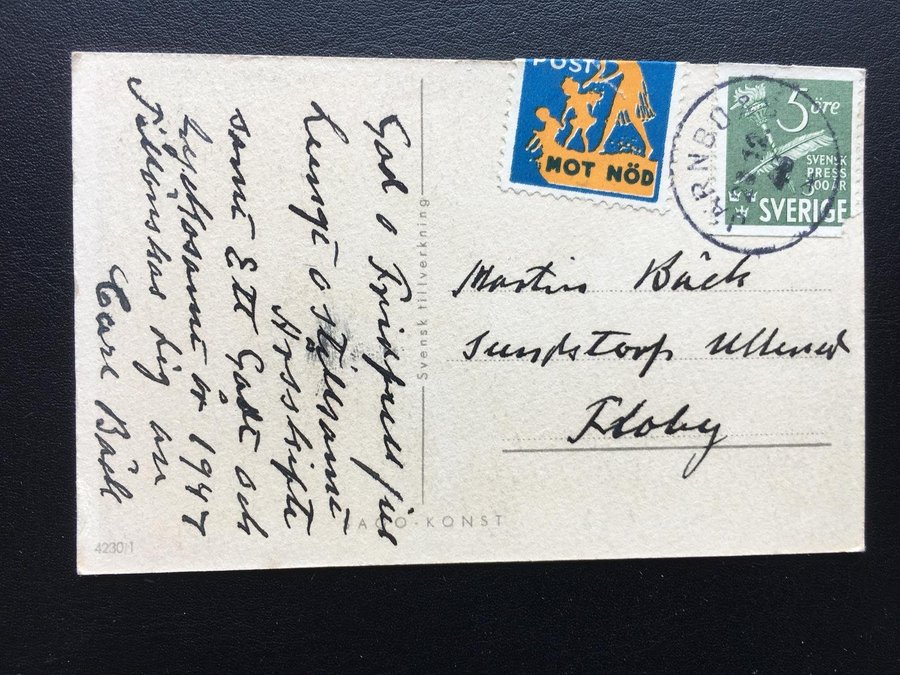 God o Fridfull jul
Lungt o stillsamt
Årsskifte
samt Ett Godt och
Lyckosamt år 1947
Tillönskas dig av
Carl Bäck
Svensk tillverkning
-KONST
4230/1
POST
MOT NÖD
5 öre
SVENSK
PRESS
300 ÅR
SVERIGE
JÄRNBO
Martin Bäck
Sundstorp Ullened
Floby